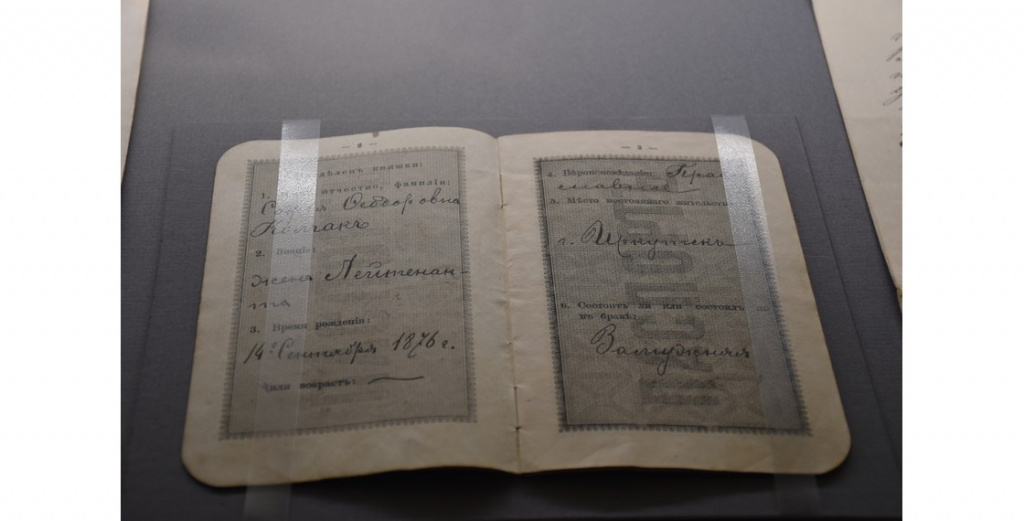 — 2 —
владѣлецъ книжки:
1. отчество, фамилія:
Софья Ѳедоровна
Колчакъ
2. Званіе:
жена Лейтенан-
та
3. Время рожденія:
14го Сентября 1876 г.
или возрастъ: —
— 3 —
4. Вѣроисповѣданіе: Право
славное
5. Мѣсто постояннаго жительства
г. Иркутскъ
6. Состоитъ ли или состоялъ ли
въ бракѣ:
Замужняя
ПАСПОРТ